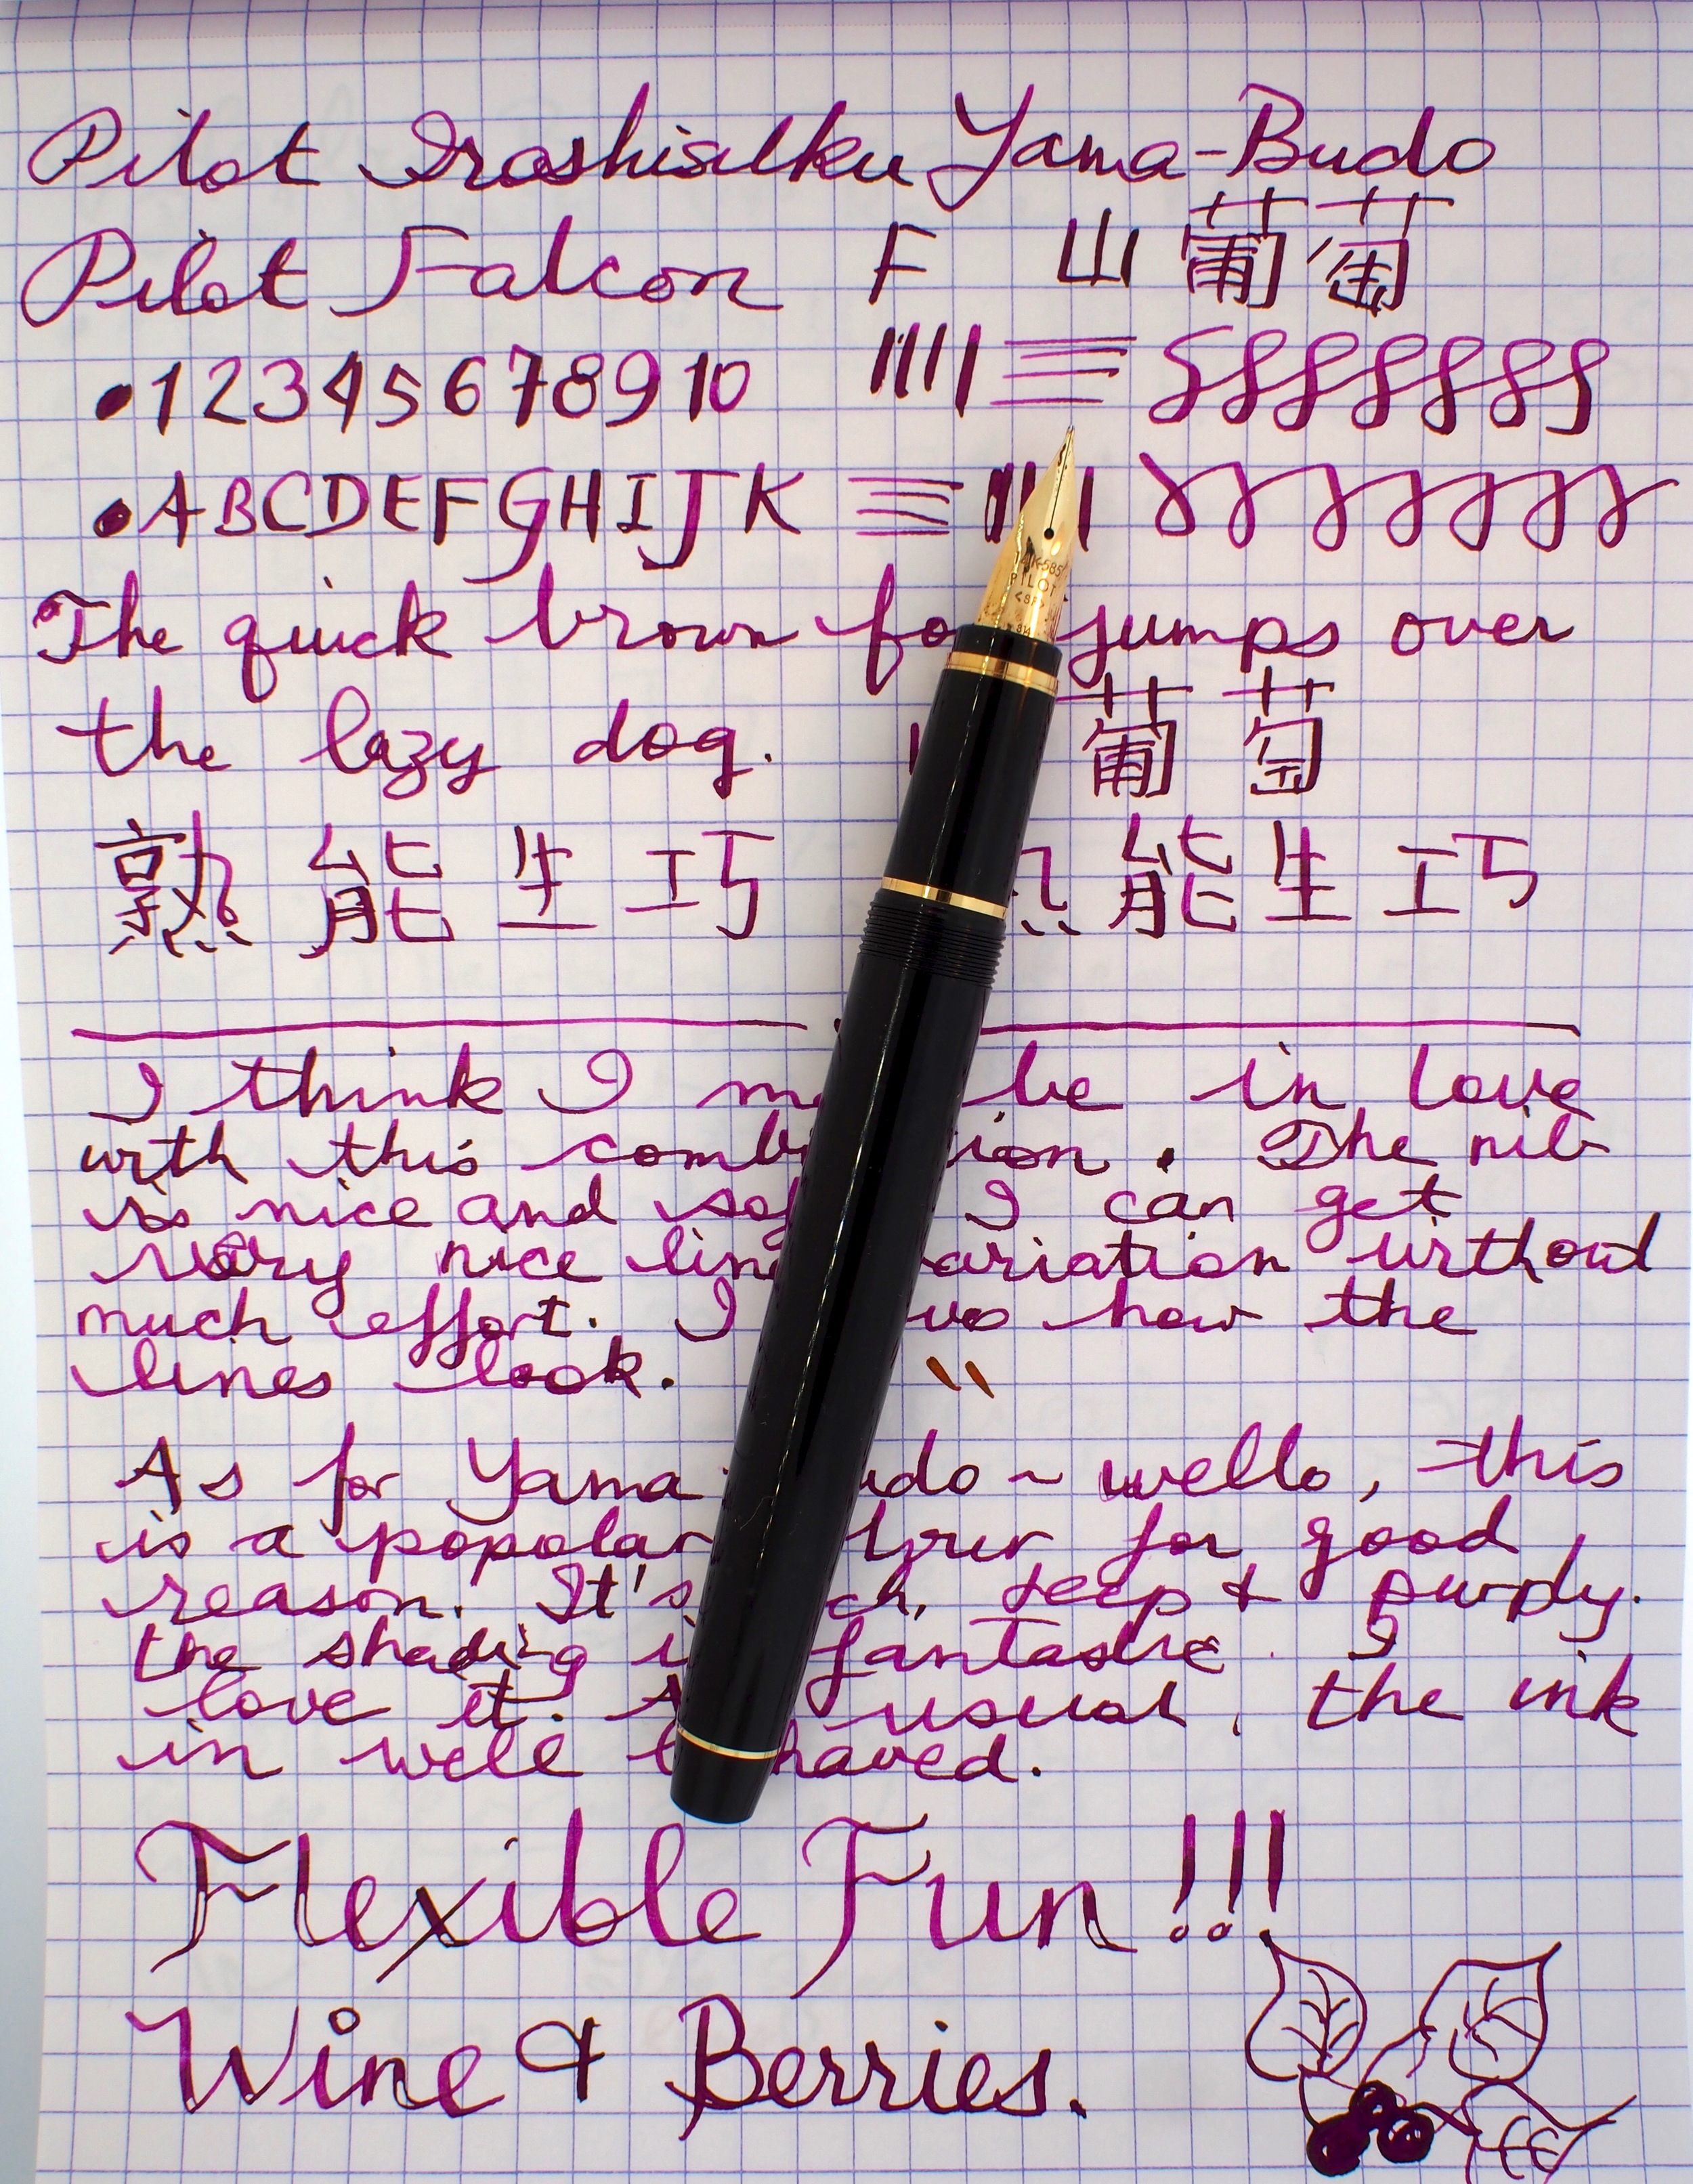 Pilot Iroshizuku Yama-Budo
Pilot Falcon F 山葡萄
1 2 3 4 5 6 7 8 9 10
A B C D E F G H I J K
14K-585
PILOT
<SF>
The quick brown fo jumps over
the lazy dog. 葡萄
熟能生巧 能生巧
I think I be in love
with this . The nib
is nice and I can get
very nice variation without
much effort. I how the
lines look.
As for Yama ~ wello, this
is a popolar for good
reason. It's deep & purply.
the shading fantastic. I
love it. usual, the ink
in well
Flexible Fun!!!
Wine & Berries.